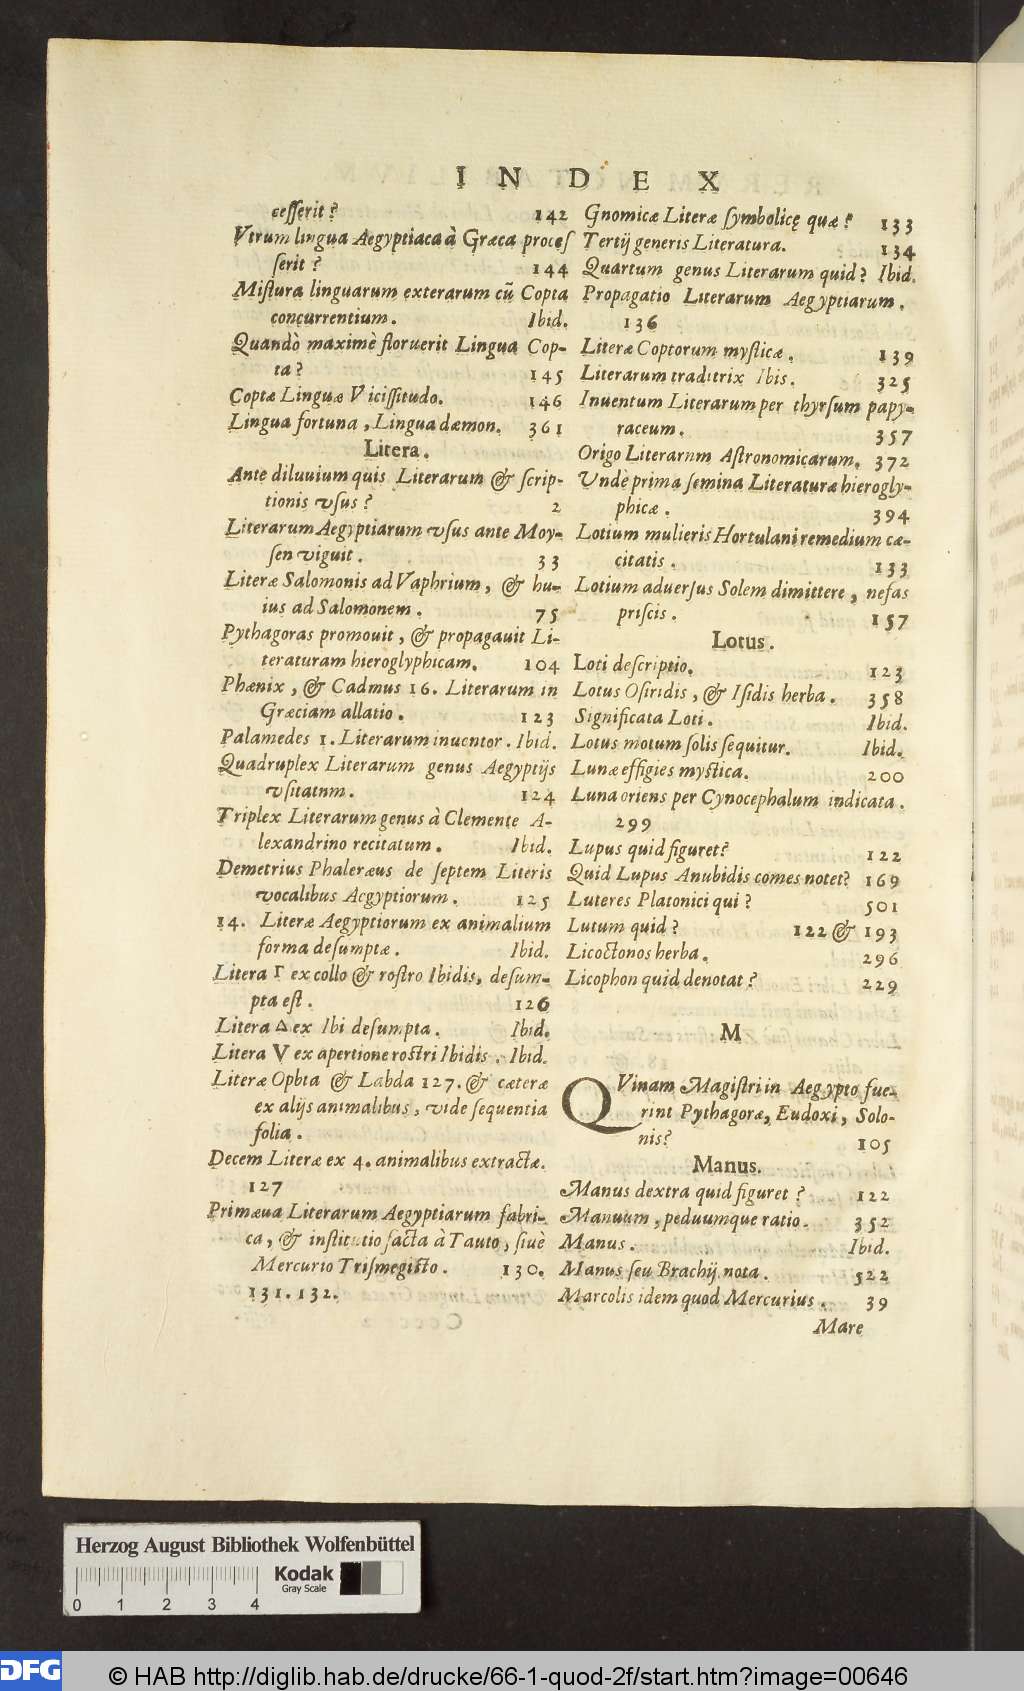 INDEX
cesserit? 142
Vtrum lingua Aegyptiaca à Græca proces
serit? 144
Mistura linguarum exterarum cū Copta
concurrentium. Ibid.
Quandò maximè floruerit Lingua Cop-
ta? 145
Coptæ Linguæ Vicissitudo. 146
Lingua fortuna, Lingua dæmon. 361
Litera.
Ante diluuium quis Literarum & scrip-
tionis vsus? 2
Literarum Aegyptiarum vsus ante Moy-
sen viguit. 33
Literæ Salomonis ad Vaphrium, & hu-
ius ad Salomonem. 75
Pythagoras promouit, & propagauit Li-
teraturam hieroglyphicam. 104
Phænix, & Cadmus 16. Literarum in
Græciam allatio. 123
Palamedes 1. Literarum inuentor. Ibid.
Quadruplex Literarum genus Aegyptijs
vsitatnm. 124
Triplex Literarum genus à Clemente A-
lexandrino recitatum. Ibid.
Demetrius Phaleræus de septem Literis
vocalibus Aegyptiorum. 125
14. Literæ Aegyptiorum ex animalium
forma desumptæ. Ibid.
Litera Γ ex collo & rostro Ibidis, desum-
pta est. 126
Litera Δ ex Ibi desumpta. Ibid.
Litera V ex apertione rostri Ibidis. Ibid.
Literæ Ophta & Labda 127. & cæteræ
ex alijs animalibus, vide sequentia
folia.
Decem Literæ ex 4. animalibus extractæ.
127
Primæua Literarum Aegyptiarum fabri-
ca, & institutio facta à Tauto, siuè
Mercurio Trismegisto. 130.
131. 132.
Gnomicæ Literæ symbolicę quæ? 133
Tertij generis Literatura. 134
Quartum genus Literarum quid? Ibid.
Propagatio Literarum Aegyptiarum.
136
Literæ Coptorum mysticæ. 139
Literarum traditrix Ibis. 325
Inuentum Literarum per thyrsum papy-
raceum. 357
Origo Literarnm Astronomicarum. 372
Vndè prima semina Literaturæ hierogly-
phicæ. 394
Lotium mulieris Hortulani remedium cæ-
citatis. 133
Lotium aduersus Solem dimittere, nefas
priscis. 157
Lotus.
Loti descriptio. 123
Lotus Osiridis, & Isidis herba. 358
Significata Loti. Ibid.
Lotus motum solis sequitur. Ibid.
Lunæ effigies mystica. 200
Luna oriens per Cynocephalum indicata.
299
Lupus quid figuret? 122
Quid Lupus Anubidis comes notet? 169
Luteres Platonici qui? 501
Lutum quid? 122 & 193
Licoctonos herba. 296
Licophon quid denotat? 229
M
QVinam Magistri in Aegypto fue-
rint Pythagoræ, Eudoxi, Solo-
nis? 105
Manus.
Manus dextra quid figuret? 122
Manuum, peduumque ratio. 352
Manus. Ibid.
Manus seu Brachij nota. 522
Marcolis idem quod Mercurius. 39
Mare
Herzog August Bibliothek Wolfenbüttel
Kodak
Gray Scale
0 1 2 3 4
DFG
© HAB http://diglib.hab.de/drucke/66-1-quod-2f/start.htm?image=00646